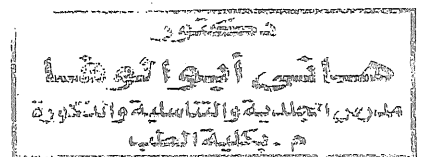 دكتور
هانى أبو الوفا
مدرس الجلدية والتناسلية والذكورة
م . بكلية الطب